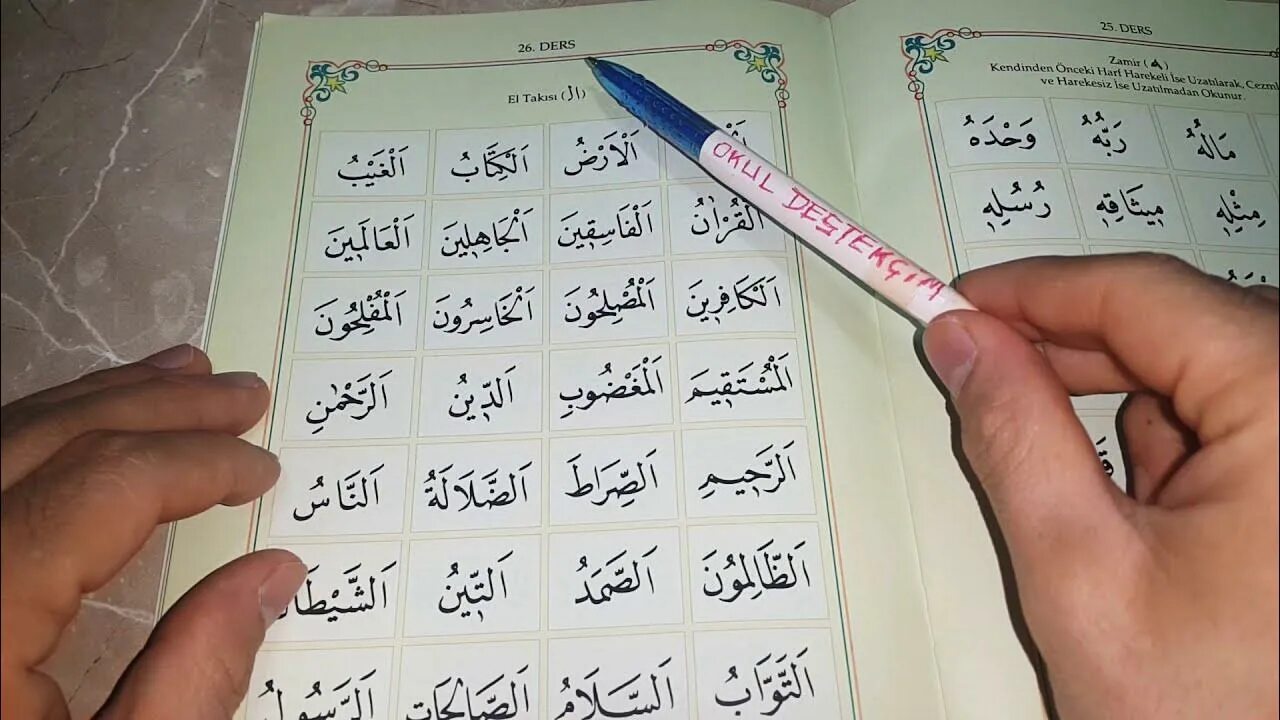 26. DERS
El Takısı (ال)
اَلْاَرْضُ اَلْكِتَابُ اَلْغَيْبُ
اَلْقُرْاٰنُ اَلْفَاسِقِينَ اَلْجَاهِلِينَ اَلْعَالَمِينَ
اَلْكَافِرِينَ اَلْمُصْلِحُونَ اَلْخَاسِرُونَ اَلْمُفْلِحُونَ
اَلْمُسْتَقِيمَ اَلْمَغْضُوبِ اَلدِّينُ اَلرَّحْمٰنِ
اَلرَّحِيمِ اَلصِّرَاطَ اَلضَّلَالَةُ اَلنَّاسُ
اَلظَّالِمُونَ اَلصَّمَدُ اَلتِّينُ
اَلتَّوَّابُ اَلسَّلَامُ اَلصَّالِحَاتِ اَلرَّسُولُ
OKUL DESTEKÇİM
25. DERS
Zamir (ه)
Kendinden Önceki Harf Harekeli İse Uzatılarak, Cezml
ve Harekesiz İse Uzatılmadan Okunur.
مَالُهُ رَبُّهُ وَحْدَهُ
مِثْلِهِ مِيثَاقِهِ رُسُلِهِ